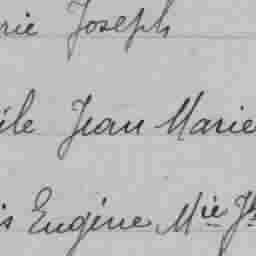 rie Joseph
ile Jean Marie
is Eugène Mie Jh